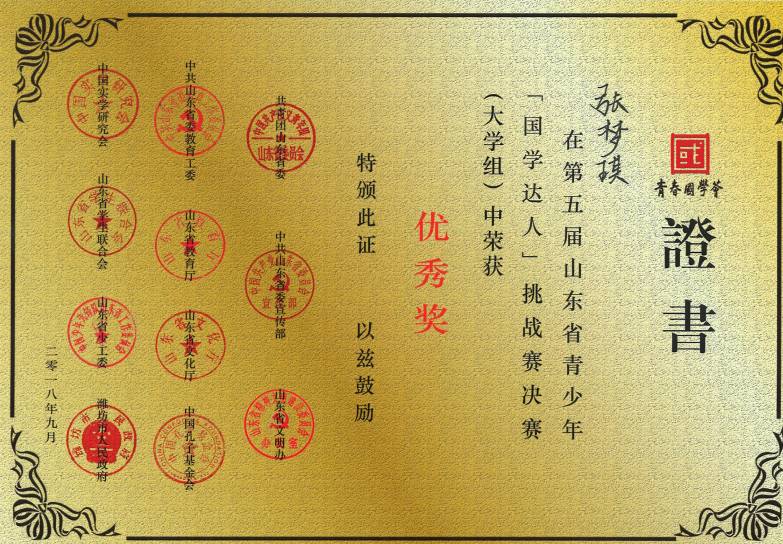 青春國學薈
證書
张梦琪
在第五届山东省青少年
「国学达人」挑战赛决赛
（大学组）中荣获
优秀奖
特颁此证 以兹鼓励
共青团山东省委
中共山东省委宣传部
山东省文明办
中共山东省委教育工委
山东省教育厅
山东省文化厅
中国孔子基金会
中国实学研究会
山东省学生联合会
山东省少工委
潍坊市人民政府
二零一八年九月